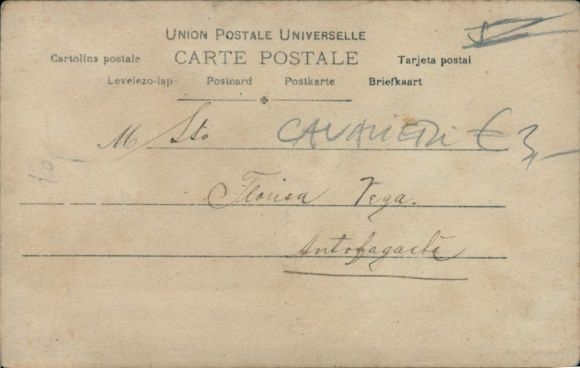 UNION POSTALE UNIVERSELLE
Cartolina postale CARTE POSTALE Tarjeta postal
Levelezo-lap Postcard Postkarte Briefkaart
M Sto CAVALIERI € 3,-
Vega.
Antofagasta